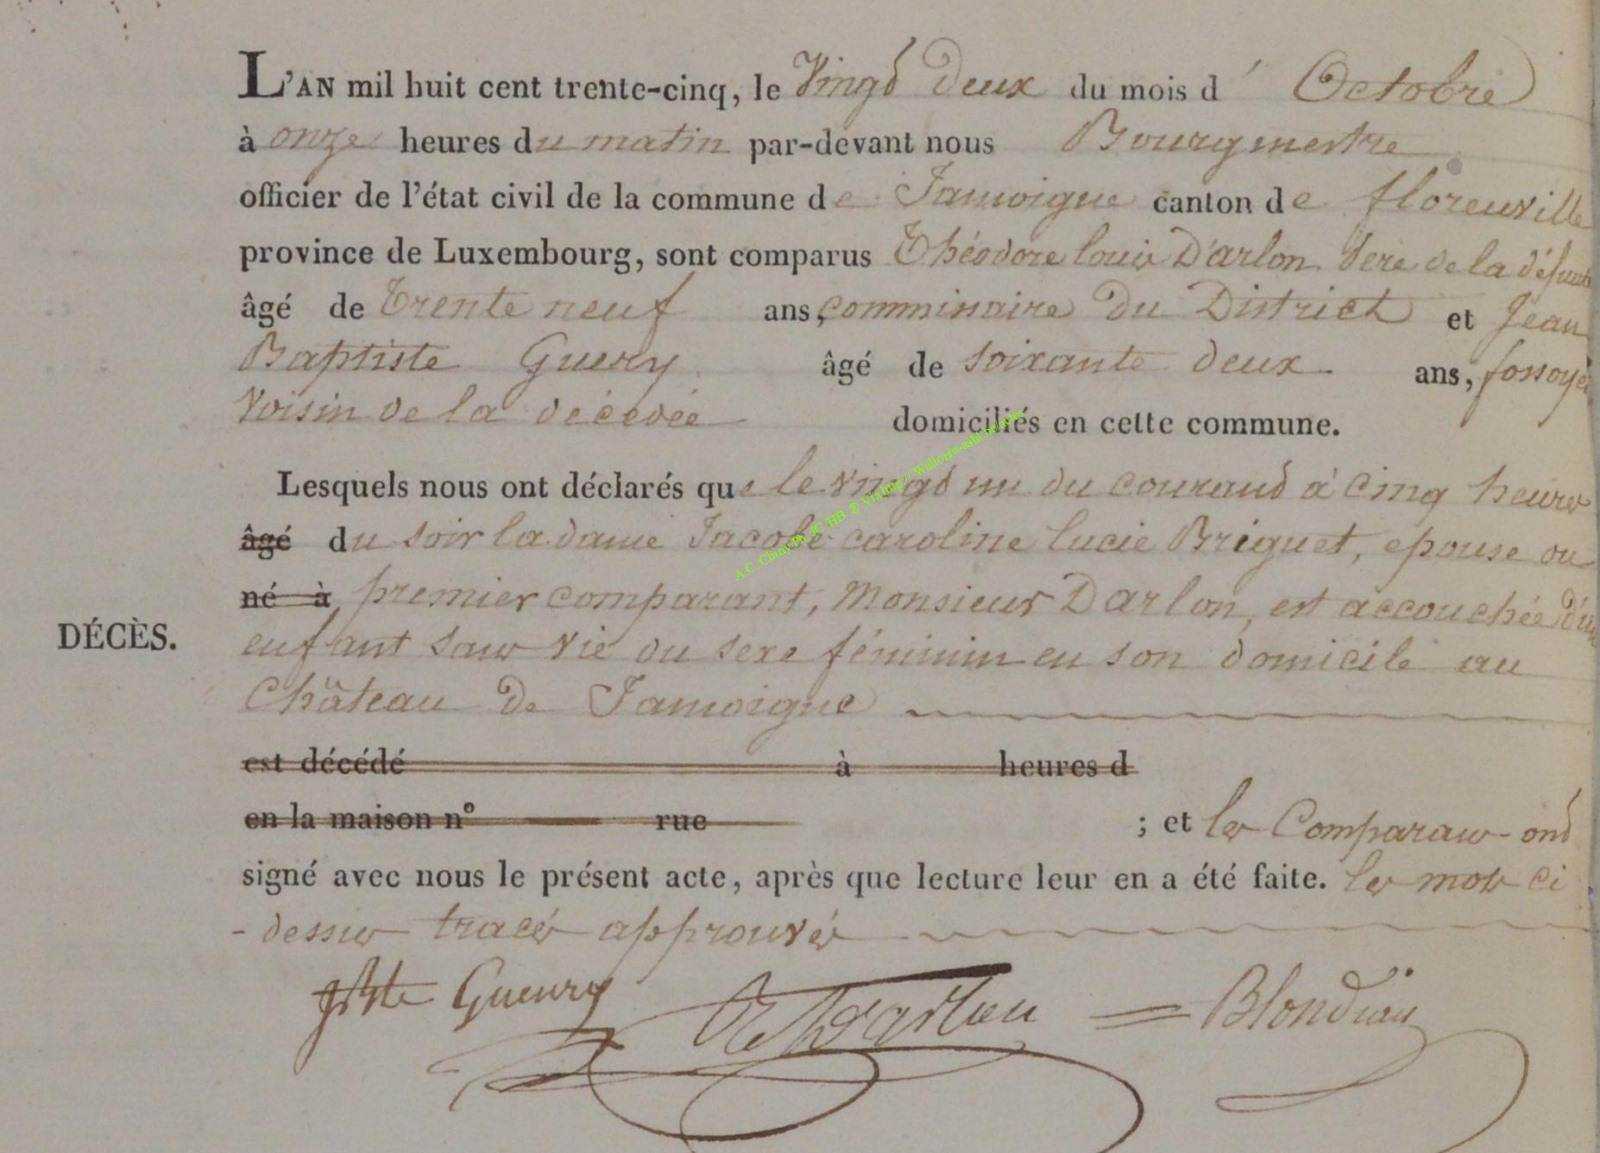 L'AN mil huit cent trente-cinq, le Vingt deux du mois d' Octobre
à onze heures du matin par-devant nous Bourgmestre
officier de l'état civil de la commune de Jamoigne canton de florenville
province de Luxembourg, sont comparus Théodore louis D'arlon Père de la défunte
âgé de Trente neuf ans, commissaire Du District et Jean
Baptiste Guery âgé de soixante deux ans, fossoyeur
Voisin de la décédée domiciliés en cette commune.
Lesquels nous ont déclarés que le vingt un du courant à cinq heures
âgé du soir la dame Jacobé caroline lucie Briguet, epouse du
né à premier comparant, Monsieur Darlon, est accouchée d'un
DÉCÈS.
enfant sans vie du sexe féminin en son domicile au
Château de Jamoigne
est décédé à heures d
en la maison n° rue ; et les Comparans ont
signé avec nous le présent acte, après que lecture leur en a été faite. les mots ci
-dessus tracés approuvés
JBte Guenry Darlon Blondiau